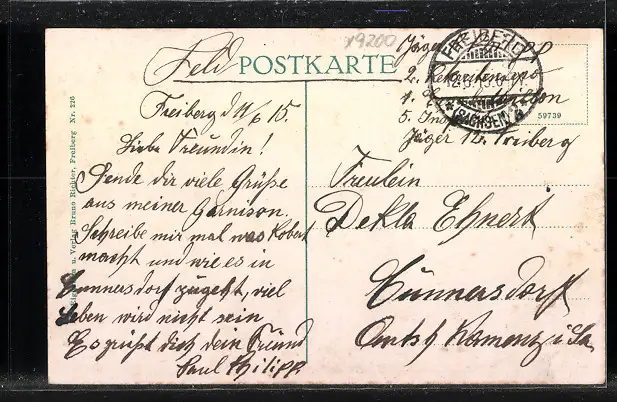 19200
Feld POSTKARTE
Freiberg d 11/6 15.
Liebe Freundin!
Sende dir viele Grüße
aus meiner Garnison.
Schreibe mir mal was Robert
macht und wie es in
Cunnersdorf zugeht, viel
Leben wird nicht sein
Es grüßt dich dein Freund
Paul Philipp
Jäger
2. Rekruten
1.
5.
Jäger 12. Freiberg
FREIBERG
(SACHSEN)
59739
Freulein
Dekla Ehnert
Cünnersdorf
Amtsh Kamenz i. Sa.
u. Verlag Bruno Richter, Freiberg Nr. 226